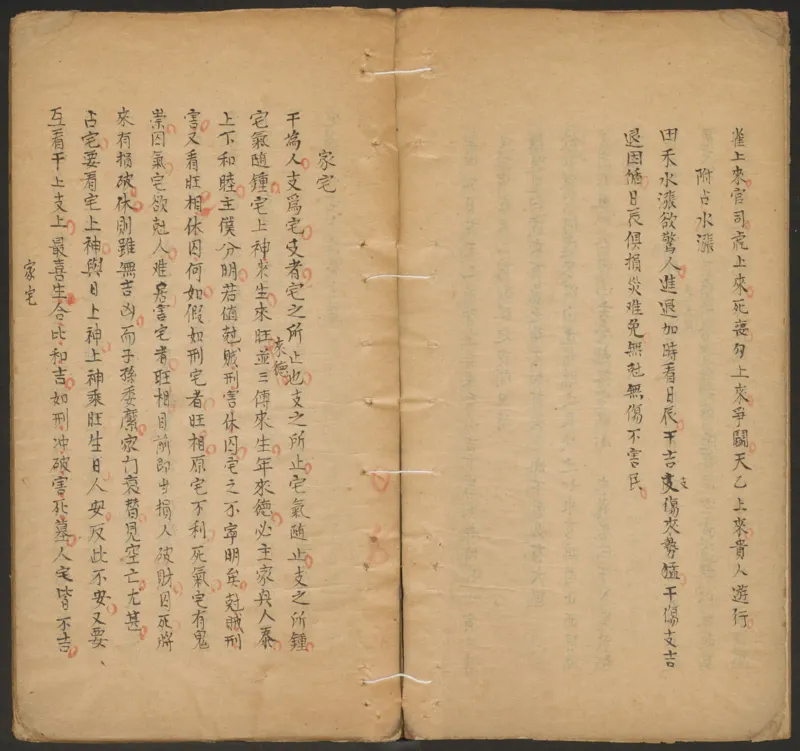 雀上來官司虎上來死喪勾上來爭鬭天乙上來貴人遊行
附占水漲
田禾水漲欲驚人進退加時看日辰干吉支傷來勢猛干傷支吉
退因循日辰俱損災难免無尅無傷不害民
家宅
干為人支爲宅支者宅之所止也支之所止宅氣隨止支之所鍾
宅氣隨鍾宅上神來生來旺並三傳來生年來德必主家興人泰
來德
上下和睦主僕分明若值尅賊刑害休囚宅之不寧明矣尅賊刑
害又看旺相休囚何如假如刑宅者旺相原宅不利死氣宅有鬼
祟囚氣宅欲尅人难居害宅者旺相目前即当損人破財囚死將
來有損破休則雖無吉凶而子孫委縻家门衰替見空亡尤甚
占宅要看宅上神與日上神上神乘旺生日人安反此不安又要
互看干上支上最喜生合比和吉如刑冲破害死墓人宅皆不吉
家宅